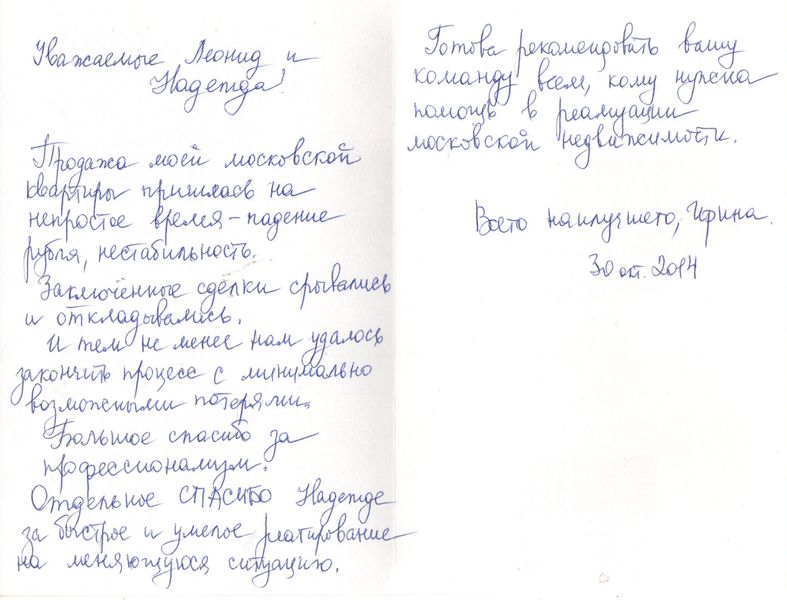 Уважаемые Леонид и
Надежда!
Продажа моей московской
квартиры пришлась на
непростое время – падение
рубля, нестабильность.
Заключённые сделки срывались
и откладывались.
И тем не менее нам удалось
закончить процесс с минимально
возможными потерями.
Большое спасибо за
профессионализм.
Отдельное СПАСИБО Надежде
за быстрое и умелое реагирование
на меняющуюся ситуацию.
Готова рекомендовать вашу
команду всем, кому нужна
помощь в реализации
московской недвижимости.
Всего наилучшего, Ирина.
30 окт. 2014